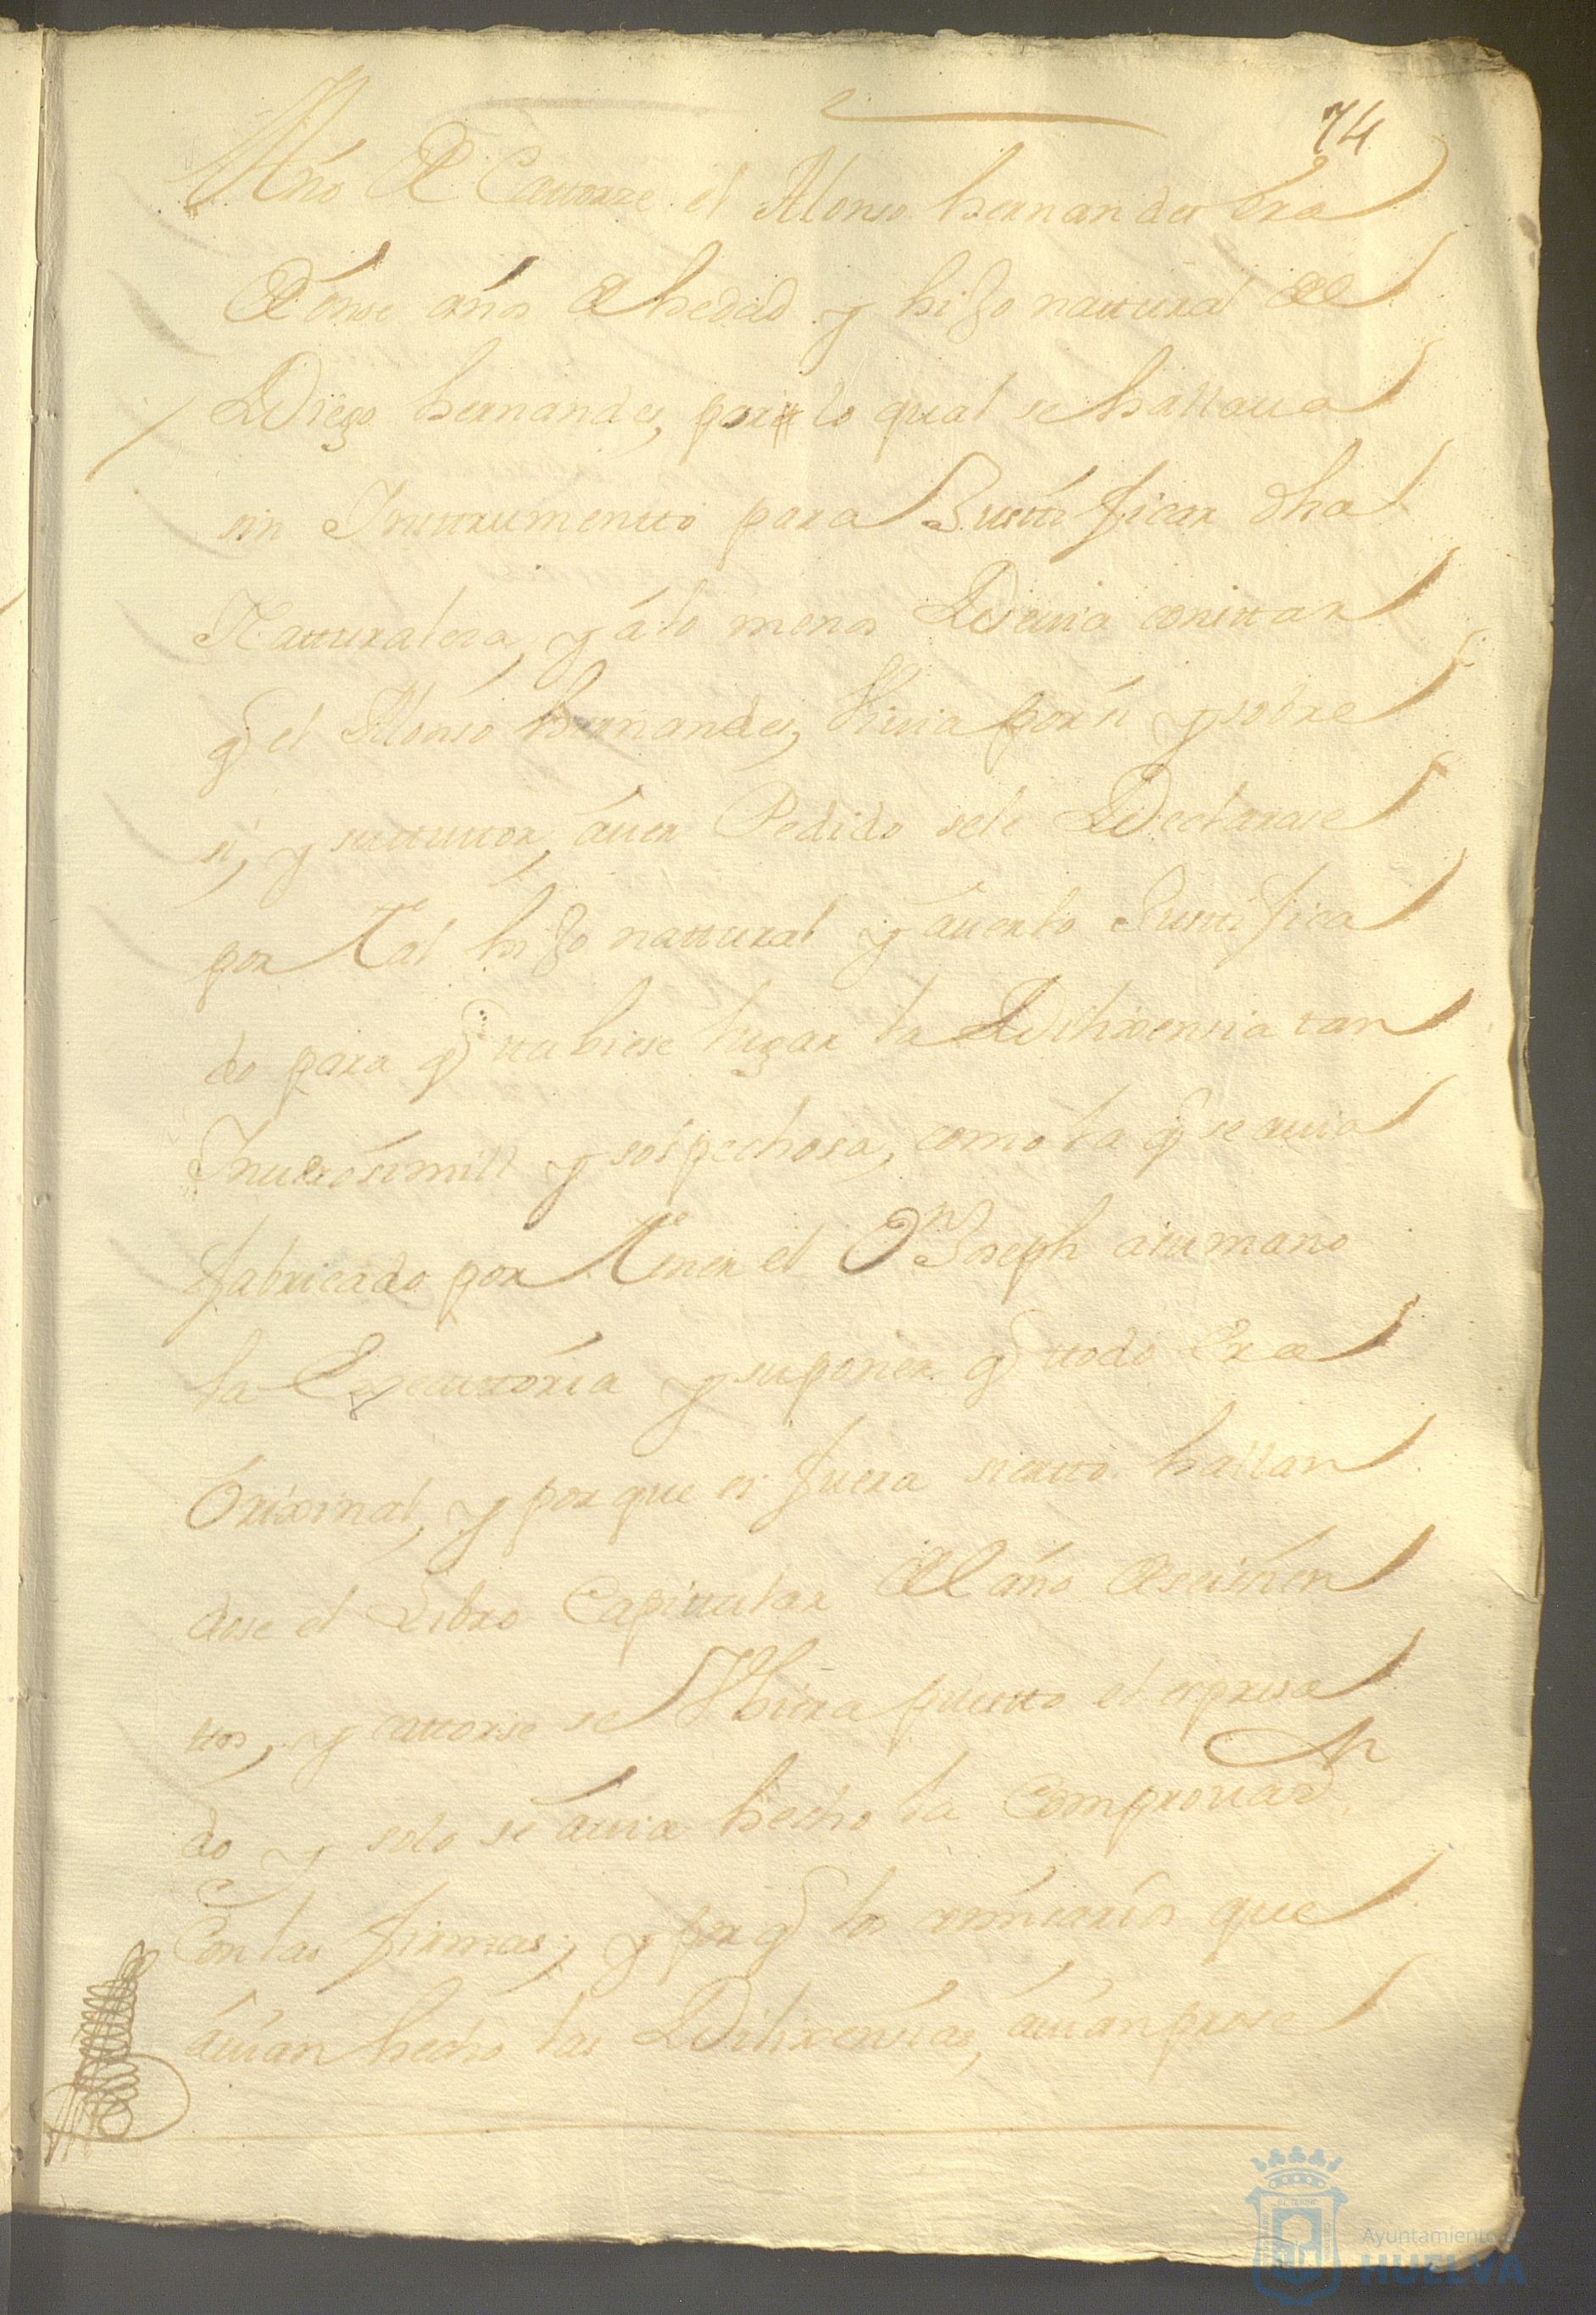 74
Año de Cattorze el Alonso hernandes Era
de onse años de hedad y hijo nattural de
Diego hernandes, por lo qual se hallaua
sin Instrumentto para Justtificar dha
Natturalesa, y a lo menos Deuia consttar
q el Alonso hernandes, Viuia por si y sobre
si, y su tuttor, auer Pedido se le Declarase
por Tal hijo nattural y auerlo Justtifica
do para q ttubiese lugar la Dilixensia tan
Inuerosimill y sospechosa, como la q se auia
fabricado por Tener el Dn Joseph a su mano
la Executtoria y suponer q ttodo Era
Orixinal, y porque si fuera siertto hallan
dose el Libro Capittular del año de seisien
ttos, y cattorse se Vbiera puestto el expresa
do y solo se auia hecho la Comprouaⁿ
Con las firmas; y por q los que
auian hecho las Dilixensias, auian prose
Ayuntamiento de
HUELVA